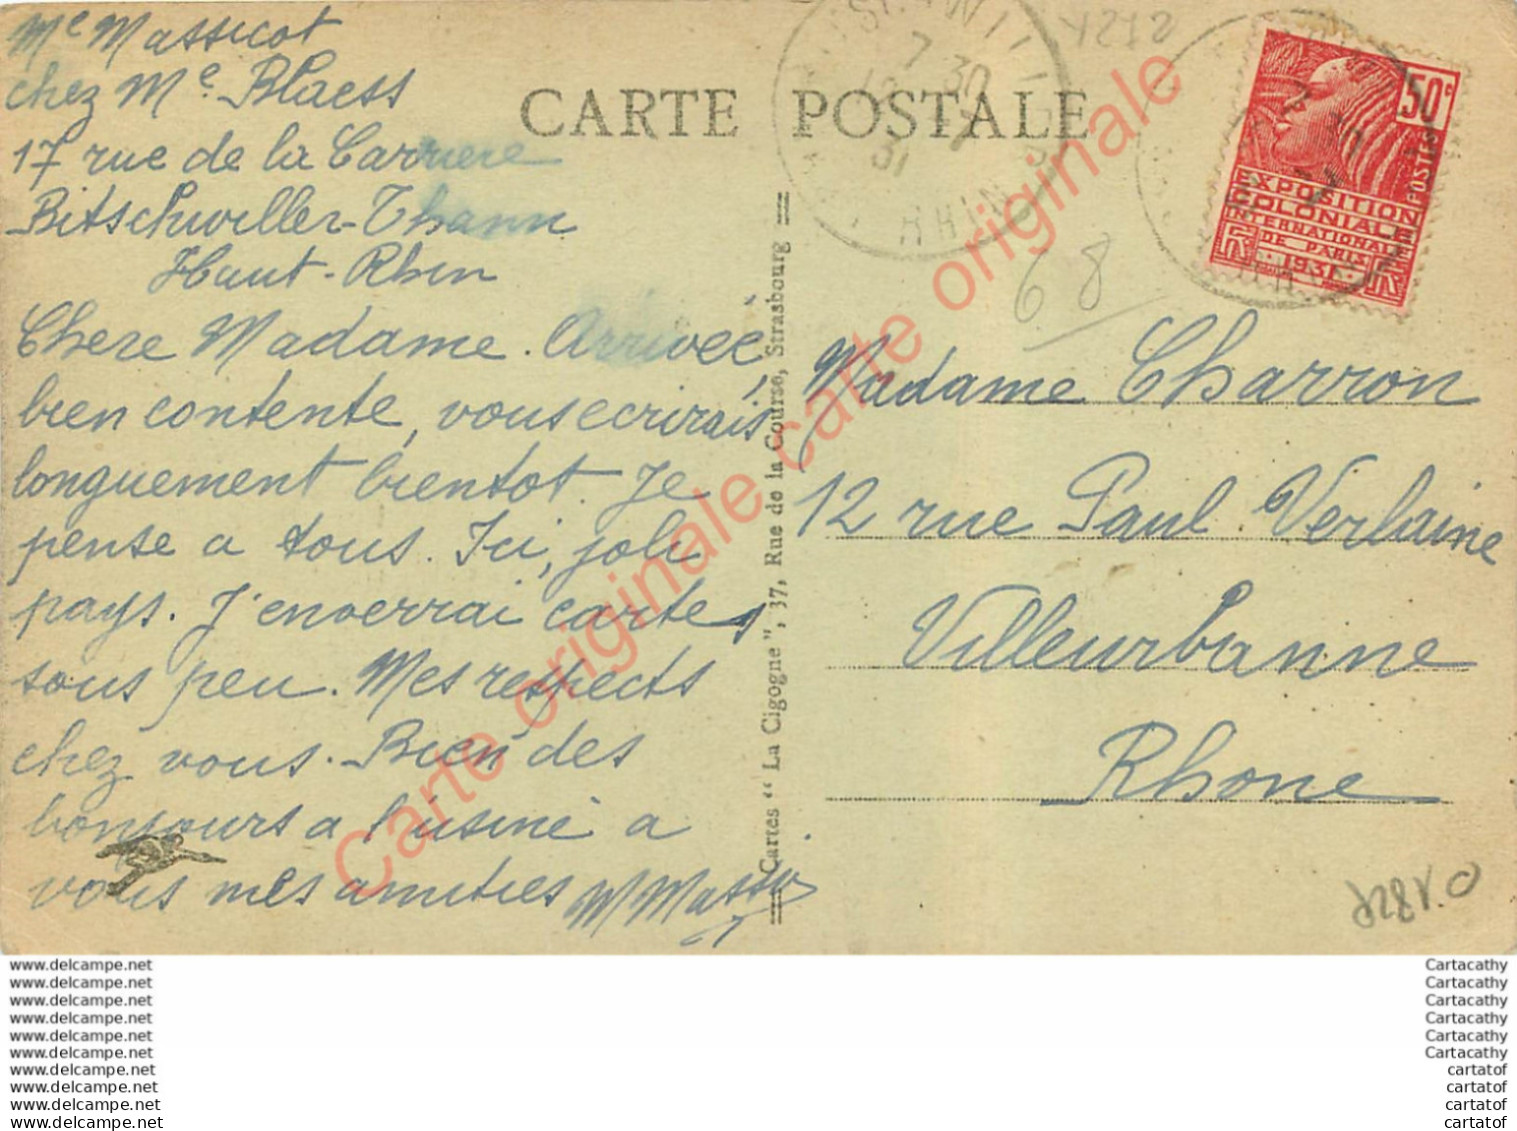 Me Massicot
chez Me. Blaess
17 rue de la Carriere
Bitschwiller-Thann
Haut-Rhin
Chere Madame. Arrivée,
bien contente, vous ecrirais
longuement bientot. Je
pense a tous. Ici, joli
pays. J'enverrai cartes
sous peu. Mes respects
chez vous. Bien des
bonjours a l'usine a
vous mes amities
CARTE POSTALE
7 30
31
RHIN
Y272
50c
POSTES
EXPOSITION
COLONIALE
INTERNATIONALE
DE PARIS
1931
68
Cartes "La Cigogne", 37, Rue de la Course, Strasbourg
Madame Charron
12 rue Paul Verlaine
Villeurbanne
Rhone
Carte originale carte originale carte originale
www.delcampe.net
www.delcampe.net
www.delcampe.net
www.delcampe.net
www.delcampe.net
www.delcampe.net
www.delcampe.net
www.delcampe.net
www.delcampe.net
www.delcampe.net
Cartacathy
Cartacathy
Cartacathy
Cartacathy
Cartacathy
Cartacathy
cartatof
cartatof
cartatof
cartatof